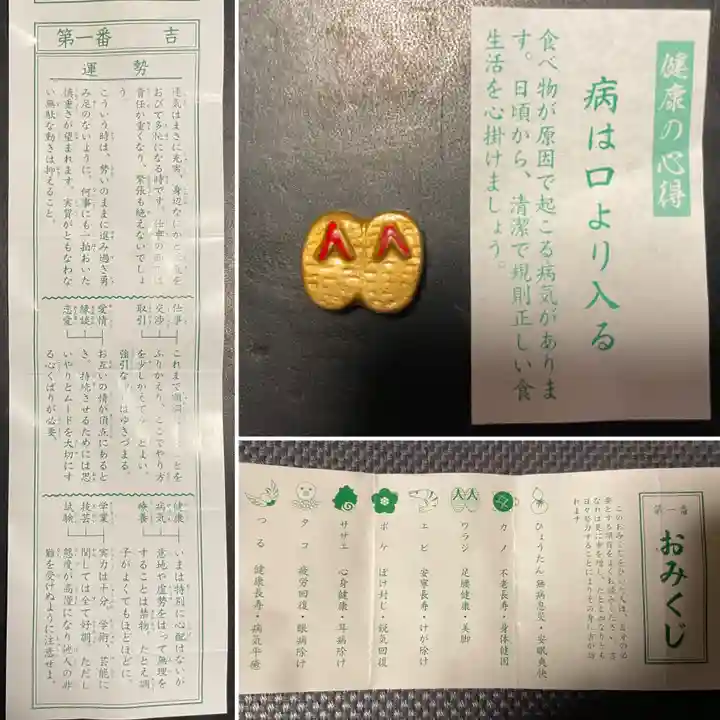 第一番 吉
運勢
運気はまさに充実。身辺なにかと
おびて多忙になる時です。仕事の面では
責任が重くなり、緊張も絶えないでしょ
う。
こういう時は、勢いのままに進み過ぎ勇
み足のないように、何事にも一拍おいた
慎重さが望まれます。実質がともなわな
い無駄な動きは抑えること。
仕事
交渉
取引
これまで
ふりかえり、ここでやり方
を少しかえて
強引な はゆきづまる。
愛情
縁談
恋愛
お互いの情が頂点にあると
き。持続させるためには思
いやりとムードを大切にす
る心くばりが必要。
健康
病気
療養
いまは特別に心配はないが
意地や虚勢をはって無理を
することは禁物。たとえ調
子がよくてもほどほどに。
学業
技芸
試験
実力は十分。学術、芸能に
関しては全て好調。ただし
態度が高慢になり他人の非
難を受けぬように注意せよ。
健康の心得
病は口より入る
食べ物が原因で起こる病気がありま
す。日頃から、清潔で規則正しい食
生活を心掛けましょう。
第一番
おみくじ
ひょうたん 無病息災・安眠爽快
カメ 不老長寿・身体健固
ワラジ 足腰健康・美脚
エビ 安寧長寿・けが除け
ボケ ぼけ封じ・鋭気回復
サザエ 心身健康・耳病除け
タコ 疲労回復・眼病除け
つる 健康長寿・病気平癒